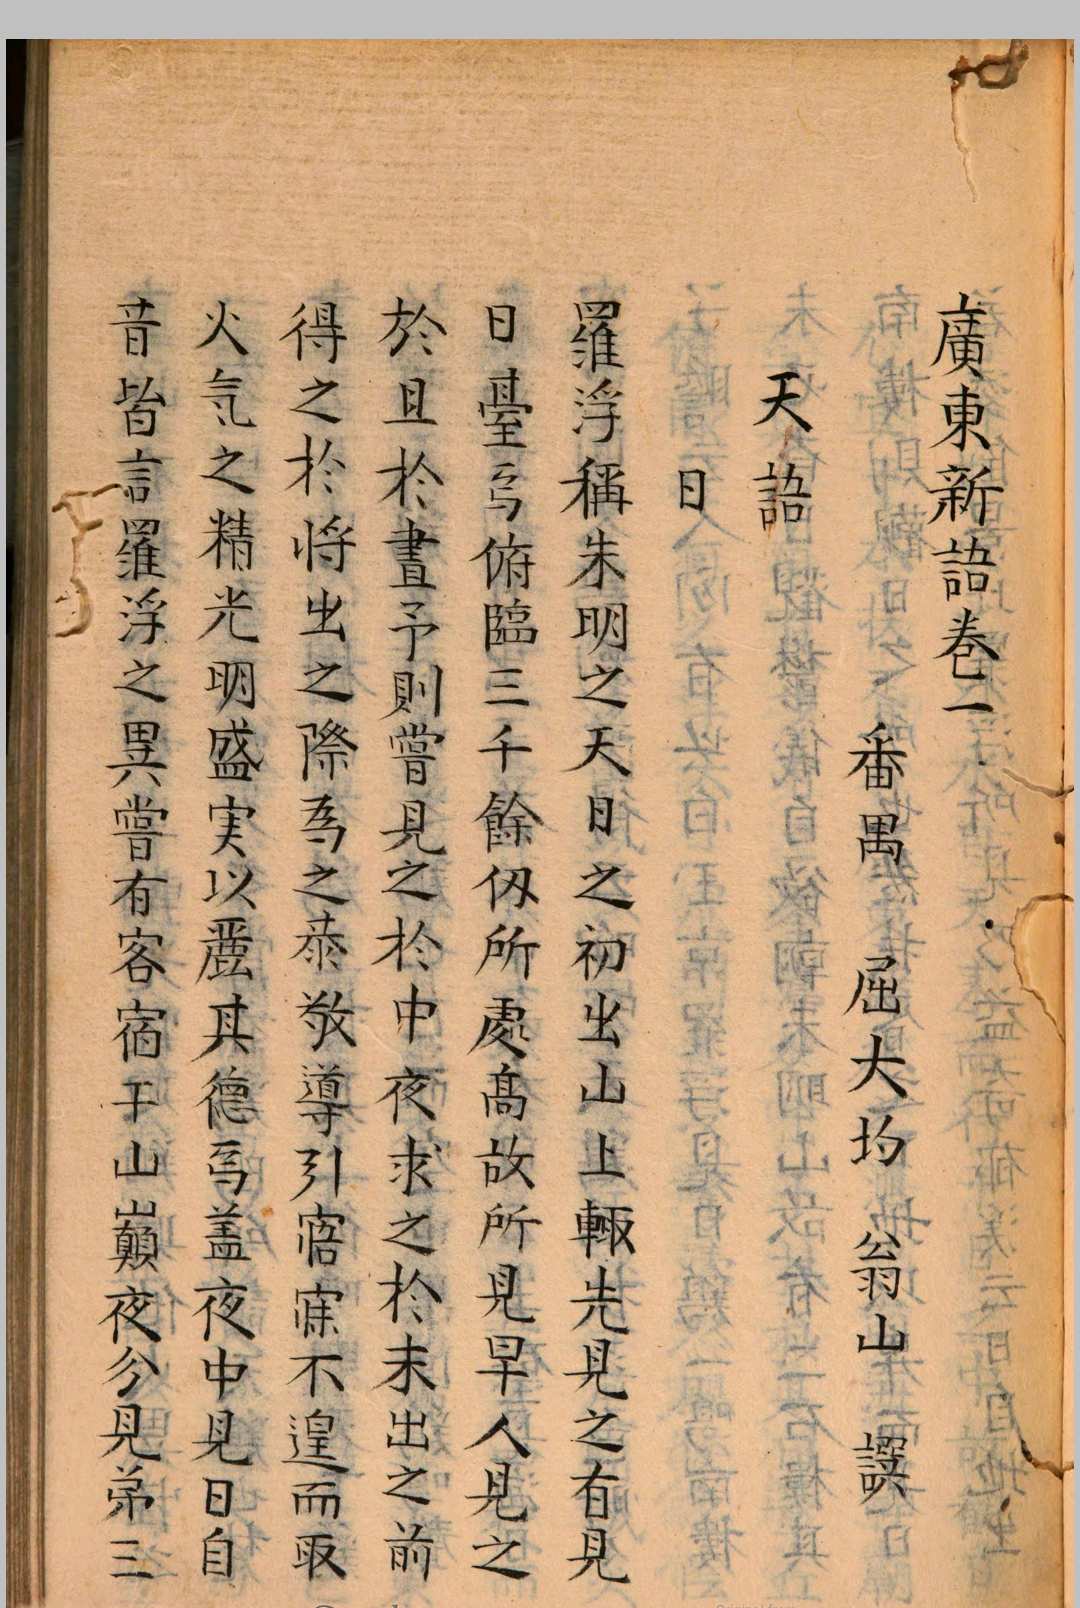 廣東新語卷一
番禺 屈大均 翁山 譔
天語
日
羅浮稱朱明之天日之初出山上輙先見之有見
日臺焉俯臨三千餘仭所處高故所見早人見之
於旦於晝予則嘗見之於中夜求之於未出之前
得之於將出之際爲之恭敬導引寤寐不遑而取
火氣之精光明盛実以麗其德焉蓋夜中見日自
昔皆言羅浮之異嘗有客宿于山巔夜分見第三